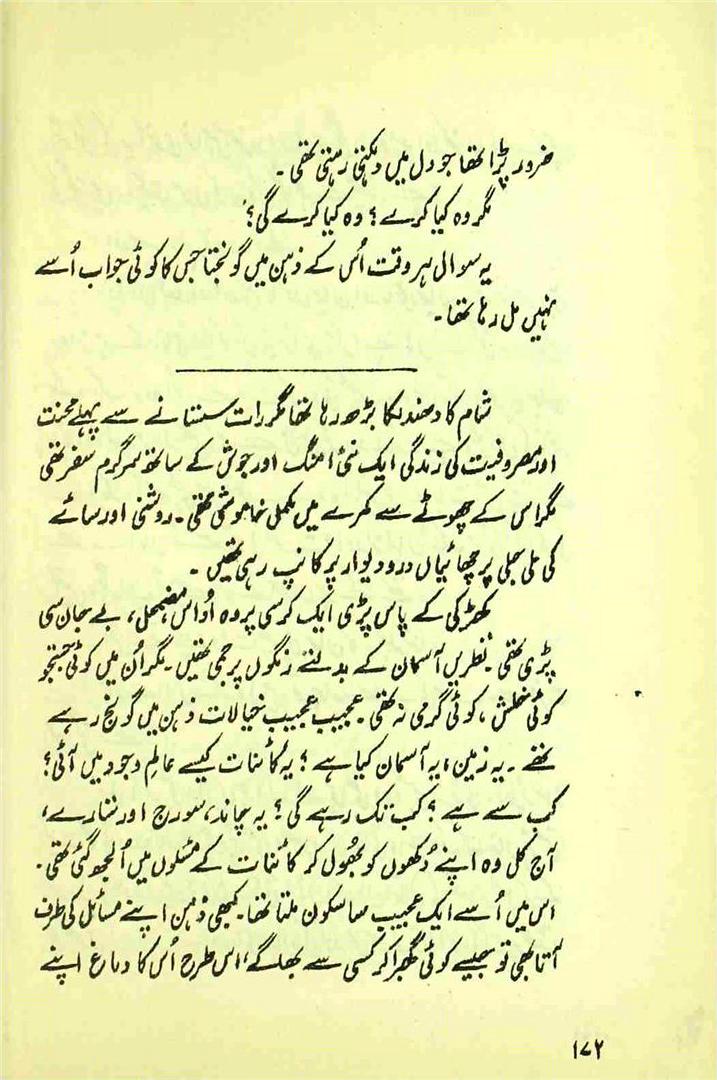 ضرور پڑا تھا جو دل میں دہکتی رہتی تھی۔
مگر وہ کیا کرے؟ وہ کیا کرے گی؟
یہ سوال ہر وقت اُس کے ذہن میں گونجتا جس کا کوئی جواب اُسے
نہیں مل رہا تھا۔
شام کا دھندلکا بڑھ رہا تھا مگر رات سستانے سے پہلے محنت
اور مصروفیت کی زندگی ایک نئی امنگ اور جوش کے ساتھ سرگرم سفر تھی
مگر اس کے چھوٹے سے کمرے میں مکمل خاموشی تھی۔ روشنی اور سائے
کی ملی جلی پرچھائیاں در و دیوار پر کانپ رہی تھیں۔
کھڑکی کے پاس پڑی ایک کرسی پر وہ اُداس، مضمحل، بے جان سی
پڑی تھی۔ نظریں آسمان کے بدلتے رنگوں پر جمی تھیں۔ مگر اُن میں کوئی جستجو
کوئی خلش، کوئی گرمی نہ تھی۔ عجیب عجیب خیالات ذہن میں گونج رہے
تھے۔ یہ زمین، یہ آسمان کیا ہے؟ یہ کائنات کیسے عالمِ وجود میں آئی؟
کب سے ہے؟ کب تک رہے گی؟ یہ چاند، سورج اور ستارے،
آج کل وہ اپنے دُکھوں کو بھُول کر کائنات کے مسئلوں میں اُلجھ گئی تھی۔
اس میں اُسے ایک عجیب سا سکون ملتا تھا۔ کبھی ذہن اپنے مسائل کی طرف
آتا بھی تو جیسے کوئی گھبرا کر کسی سے بھاگے، اس طرح اُس کا دماغ اپنے
۱۷۲